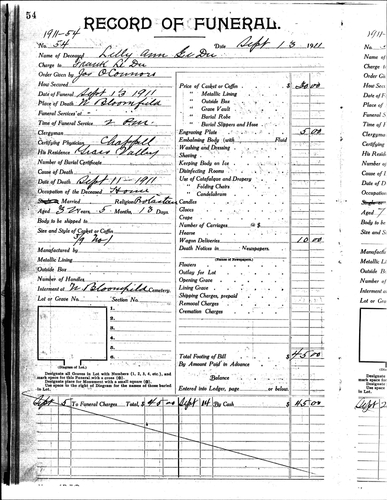 54
RECORD OF FUNERAL.
1911-54
No. 54 Date Sept 13 1911
Name of Deceased Lilly Ann
Charge to Frank
Order Given by Jos O'Connors
How Secured
Date of Funeral Sept 13 1911
Place of Death N. Bloomfield
Funeral Services at
Time of Funeral Service 2 P.M.
Clergyman
Certifying Physician
His Residence Valley
Number of Burial Certificate
Cause of Death
Date of Death Sept 11 - 1911
Occupation of the Deceased Home
Single Married Religion
Aged 32 Years, 5 Months, 13 Days.
Body to be shipped to
Size and Style of Casket or Coffin
5/9 No 1
Manufactured by
Metallic Lining
Outside Box
Number of Handles
Interment at N. Bloomfield Cemetery.
Lot or Grave No. Section No.
1.
2.
3.
4.
5.
6.
(Diagram of Lot.)
Designate all Graves in Lot with Numbers (1, 2, 3, 4, etc.), and
mark space for this Funeral with a cross
Designate place for Monument with a small square
Use space to right of Diagram for the names of those buried
in Lot.
Price of Casket or Coffin $ 30 00
" Metallic Lining
" Outside Box
" Grave Vault
" Burial Robe
" Burial Slippers and Hose
Engraving Plate 5 00
Embalming Body (with Fluid
Washing and Dressing
Shaving
Keeping Body on Ice
Disinfecting Rooms
Use of Catafalque and Drapery
" Folding Chairs
" Candelabrum
Candles
Gloves
Crape
Number of Carriages @ $
Hearse
Wagon Deliveries 10 00
Death Notices in Newspapers.
(Names of Newspapers.)
Flowers
Outlay for Lot
Opening Grave
Lining Grave
Shipping Charges, prepaid
Removal Charges
Cremation Charges
Total Footing of Bill $ 45 00
By Amount Paid in Advance
Balance
Entered into Ledger, page or below.
Sept 5 To Funeral Charges Total, $ 45 00 Sept 14 By Cash $ 45 00